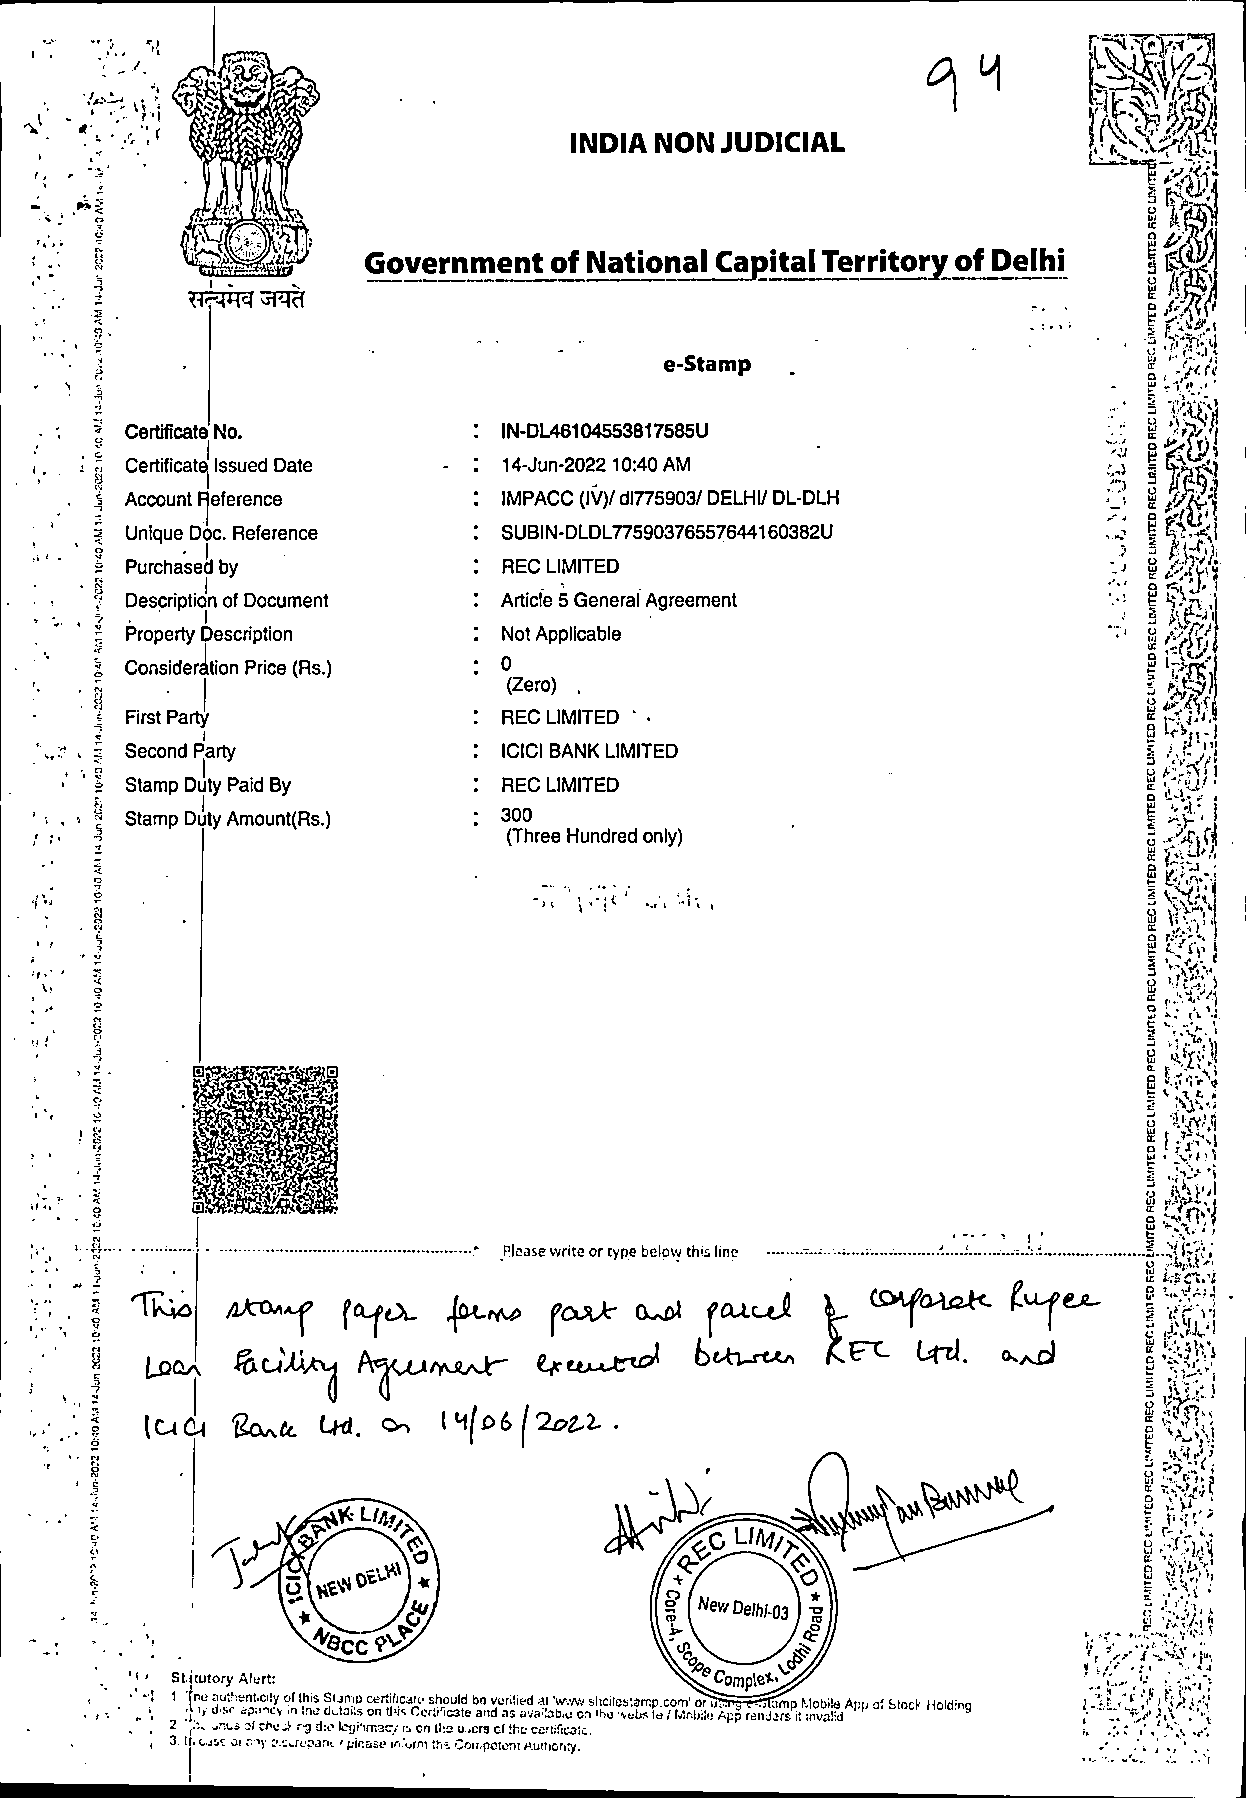 94
INDIA NON JUDICIAL
Government of National Capital Territory of Delhi
सत्यमेव जयते
e-Stamp
Certificate No. : IN-DL46104553817585U
Certificate Issued Date : 14-Jun-2022 10:40 AM
Account Reference : IMPACC (IV)/ dl775903/ DELHI/ DL-DLH
Unique Doc. Reference : SUBIN-DLDL77590376557644160382U
Purchased by : REC LIMITED
Description of Document : Article 5 General Agreement
Property Description : Not Applicable
Consideration Price (Rs.) : 0
(Zero)
First Party : REC LIMITED
Second Party : ICICI BANK LIMITED
Stamp Duty Paid By : REC LIMITED
Stamp Duty Amount(Rs.) : 300
(Three Hundred only)
Please write or type below this line
This stamp paper forms part and parcel of Corporate Rupee
Loan Facility Agreement executed between REC Ltd. and
ICICI Bank Ltd. on 14/06/2022.
ICICI BANK LIMITED
NEW DELHI
NBCC PLACE
REC LIMITED
New Delhi-03
Core-4, Scope Complex, Lodhi Road
Statutory Alert:
1 The authenticity of this Stamp certificate should be verified at 'www.shcilestamp.com' or using e-Stamp Mobile App of Stock Holding
Any discrepancy in the details on this Certificate and as available on the website / Mobile App renders it invalid
2 The onus of checking the legitimacy is on the users of the certificate.
3. In case of any discrepancy please inform the Competent Authority.